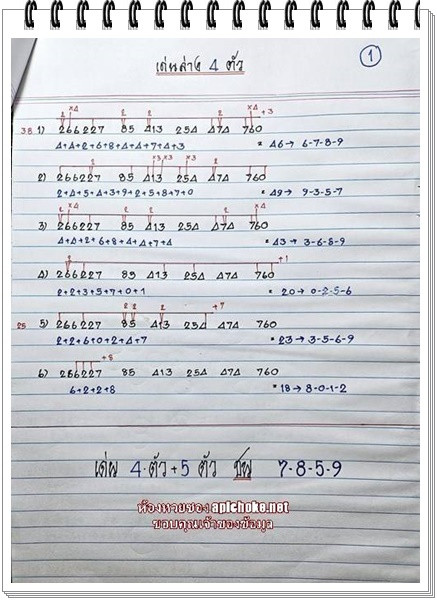 เด่นล่าง 4 ตัว
1
x4 2 2 2 x4 +3
38 1) 266227 85 413 254 474 760
4+4+2+6+8+4+4+7+4+3 * 46→ 6-7-8-9
2 x3 x3 x3
2) 266227 85 413 254 474 760
2+4+5+4+3+9+2+5+8+7+0 * 49→ 9-3-5-7
2 x4 2 2 2 x4
3) 266227 85 413 254 474 760
4+4+2+6+8+4+4+7+4 * 43→ 3-6-8-9
2 +1
4) 266227 85 413 254 474 760
2+2+3+5+7+0+1 * 20→ 0-2-5-6
2 2 2 +7
25 5) 266227 85 413 254 474 760
2+2+6+0+2+4+7 * 23→ 3-5-6-9
+8
6) 266227 85 413 254 474 760
6+2+2+8 * 18→ 8-0-1-2
เด่น 4 ตัว+5 ตัว ชน 7-8-5-9
ห้องหวยซอง apichoke.net
ขอบคุณเจ้าของข้อมูล